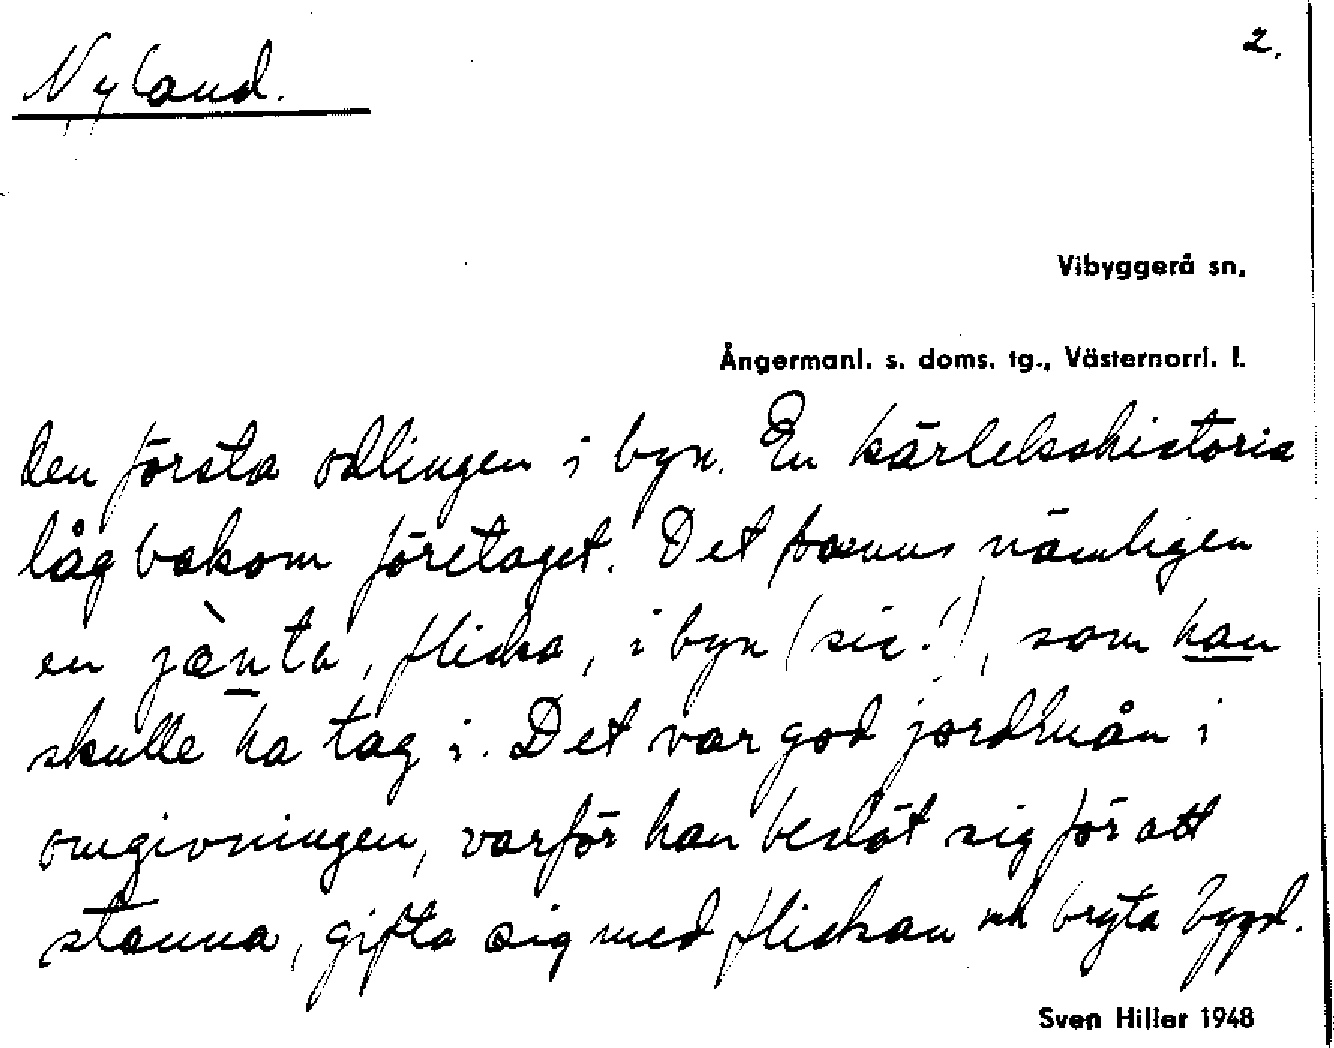 Nyland.
2.
Vibyggerå sn.
Ångermanl. s. doms. tg., Västernorrl. l.
den första odlingen i byn. En kärlekshistoria
låg bakom företaget. Det fanns nämligen
en jænta, flicka, i byn (sic!), som han
skulle ha tag i. Det var god jordmån i
omgivningen, varför han beslöt sig för att
stanna, gifta sig med flickan och bryta bygd.
Sven Hiller 1948